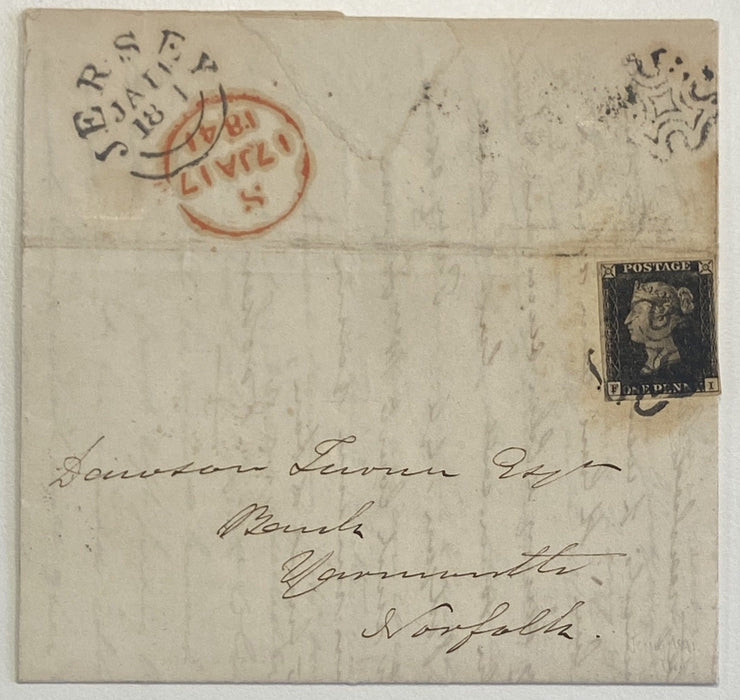 JERSEY
JA 1
18 1
S
17 JA 17
1841
POSTAGE
F ONE PENNY I
Dawson Turner Esqr
Bank
Yarmouth
Norfolk.